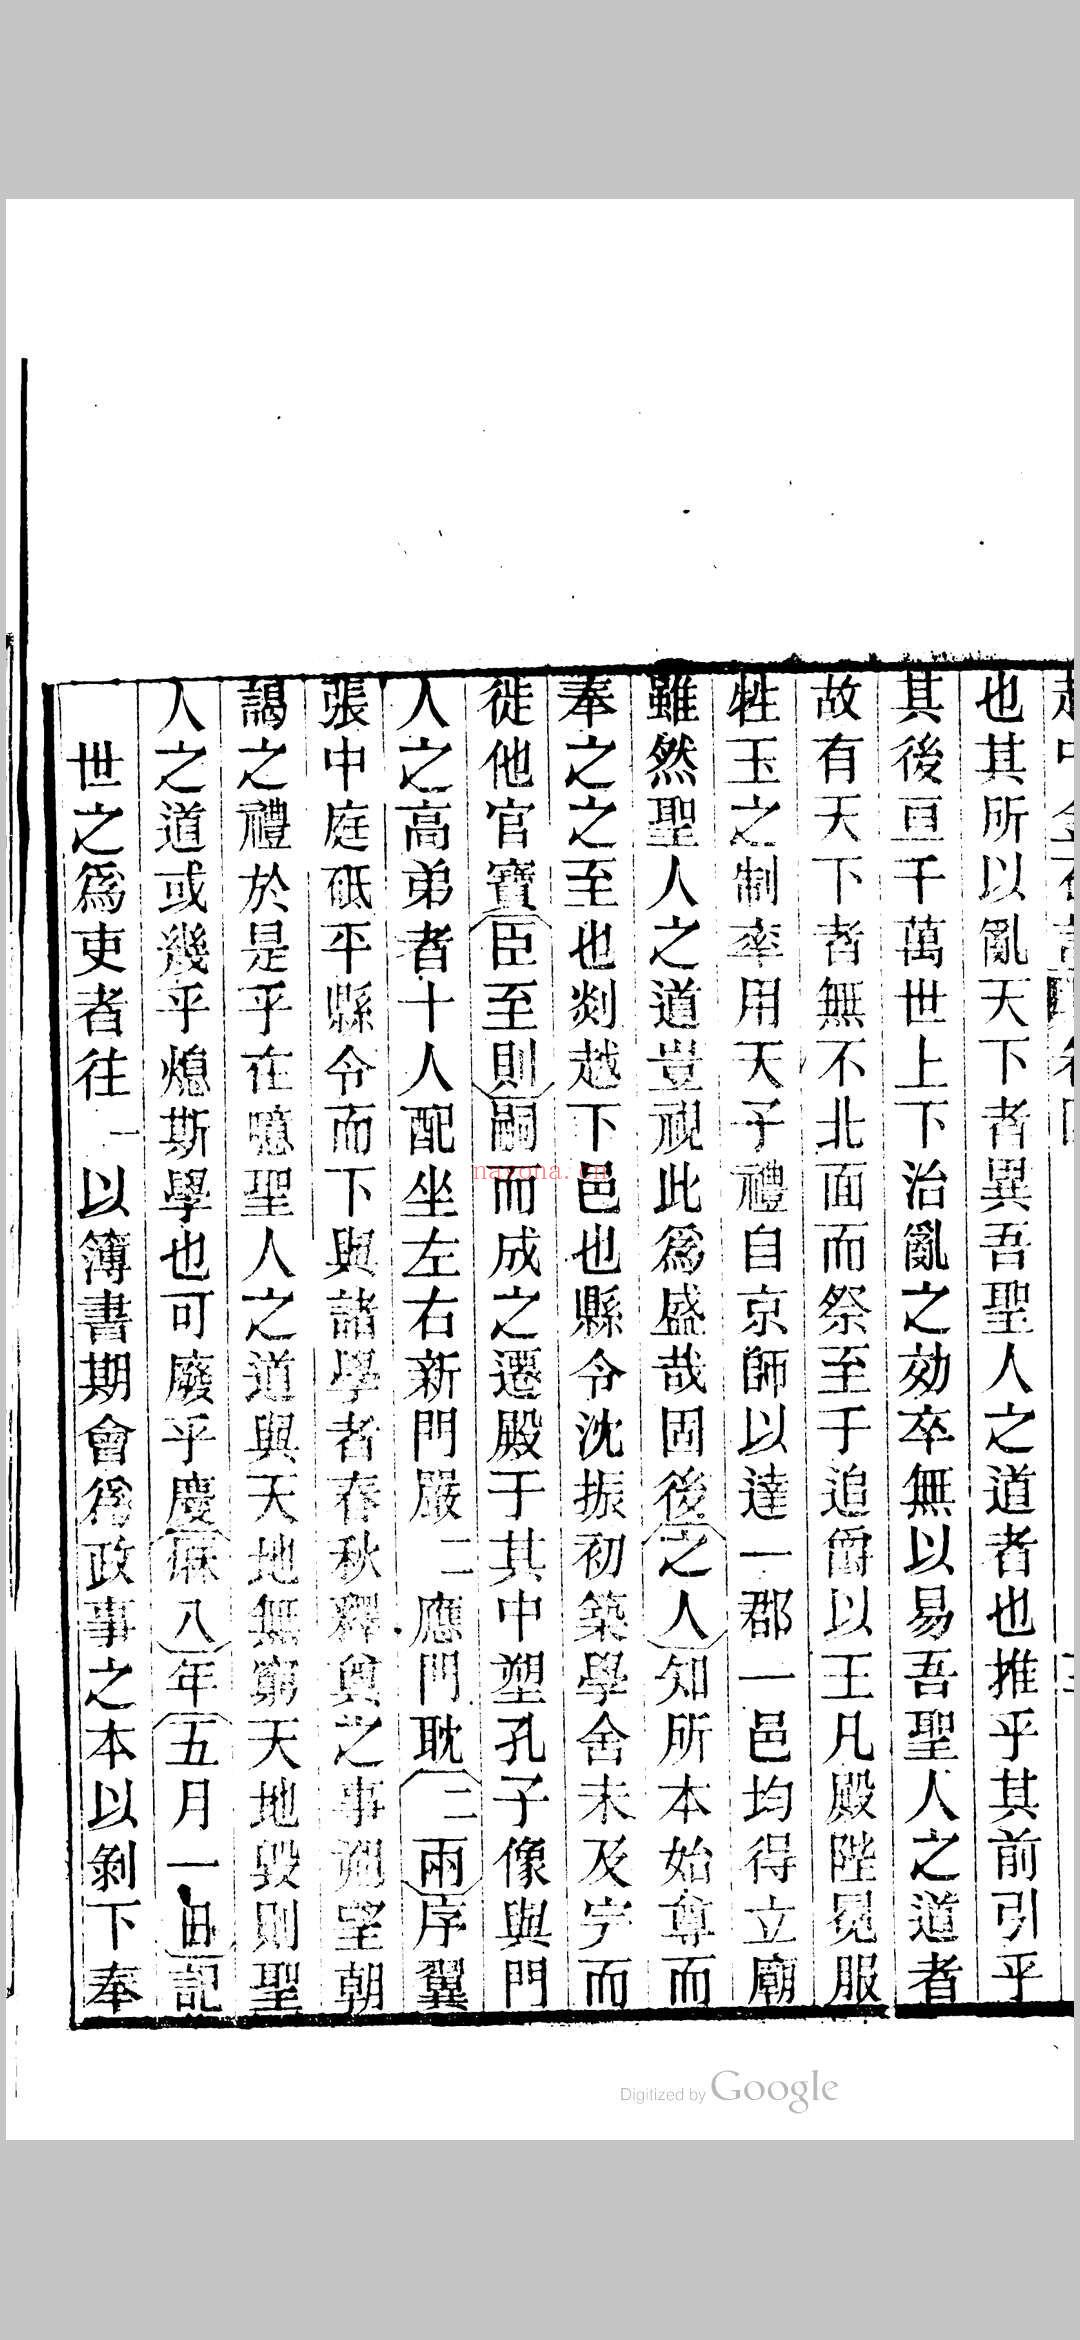 也其所以亂天下者異吾聖人之道者也推乎其前引乎
其後亘千萬世上下治亂之効卒無以易吾聖人之道者
故有天下者無不北面而祭至于追爵以王凡殿陛冕服
牲玉之制率用天子禮自京師以達一郡一邑均得立廟
雖然聖人之道豈視此爲盛哉固後之人知所本始尊而
奉之之至也剡越下邑也縣令沈振初築學舍未及宁而
徙他官寶臣至則嗣而成之遷殿于其中塑孔子像與門
人之高弟者十人配坐左右新門嚴二應門耽二兩序翼
張中庭砥平縣令而下與諸學者春秋釋奠之事朔望朝
謁之禮於是乎在噫聖人之道與天地無窮天地毀則聖
人之道或幾乎熄斯學也可廢乎慶厤八年五月一日記
世之爲吏者往一以簿書期會爲政事之本以剝下奉
nayona.cn
Digitized by Google